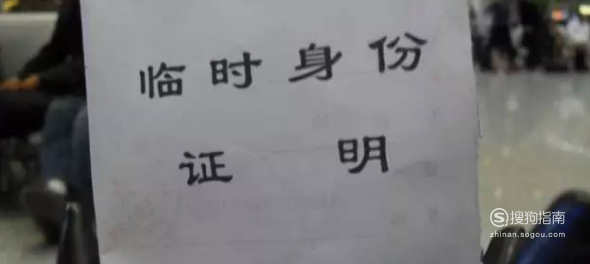 临时身份
证明
搜狗指南
zhinan.sogou.com